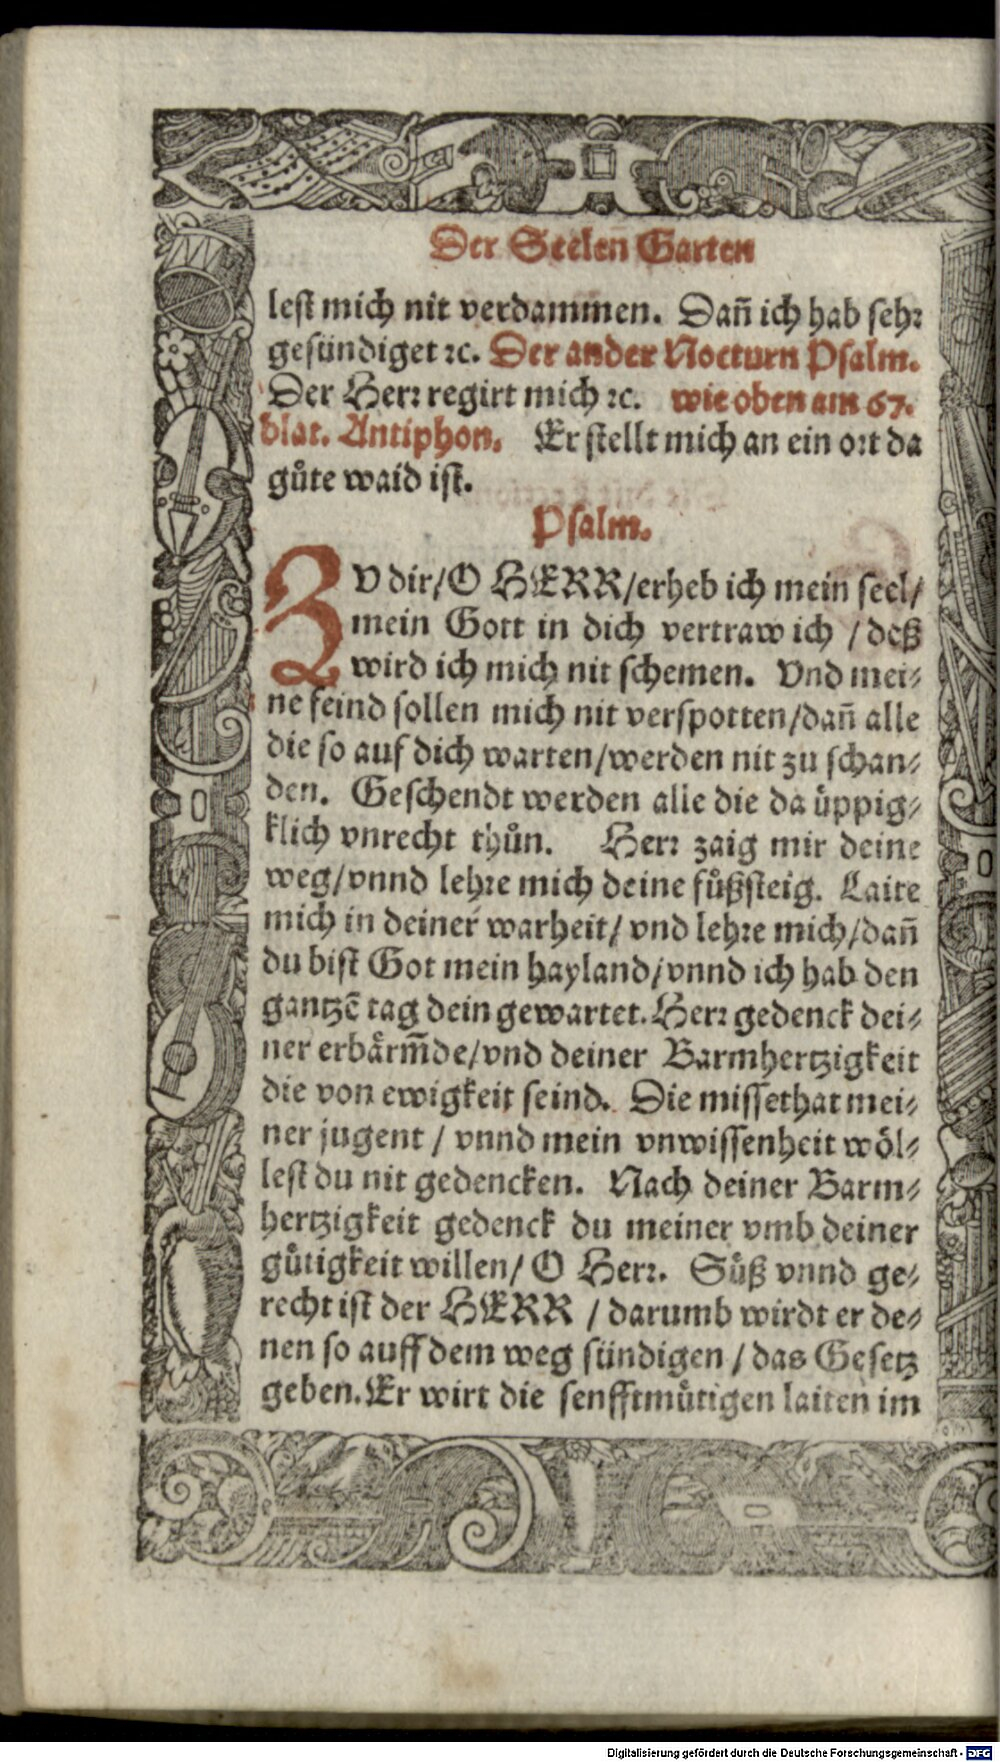 Der Seelen Garten
lest mich nit verdammen. Dañ ich hab sehr
gesündiget ꝛc. Der ander Nocturn Psalm.
Der Herr regirt mich ꝛc. wie oben am 67.
blat. Antiphon. Er stellt mich an ein ort da
gůte waid ist.
Psalm.
ZV dir/O HERR/erheb ich mein seel/
mein Gott in dich vertraw ich / deß
wird ich mich nit schemen. Vnd mei⸗
ne feind sollen mich nit verspotten/dañ alle
die so auf dich warten/werden nit zu schan⸗
den. Geschendt werden alle die da üppig⸗
klich vnrecht thůn. Herr zaig mir deine
weg/vnnd lehre mich deine fůßsteig. Laite
mich in deiner warheit/ vnd lehre mich/dañ
du bist Got mein hayland/vnnd ich hab den
gantzē tag dein gewartet. Herr gedenck dei⸗
ner erbärm̃de/vnd deiner Barmhertzigkeit
die von ewigkeit seind. Die missethat mei⸗
ner jugent / vnnd mein vnwissenheit wöl⸗
lest du nit gedencken. Nach deiner Barm⸗
hertzigkeit gedenck du meiner vmb deiner
gůtigkeit willen/ O Herr. Sůß vnnd ge⸗
recht ist der HERR / darumb wirdt er de⸗
nen so auff dem weg sündigen / das Gesetz
geben. Er wirt die senfftmůtigen laiten im
Digitalisierung gefördert durch die Deutsche Forschungsgemeinschaft - DFG